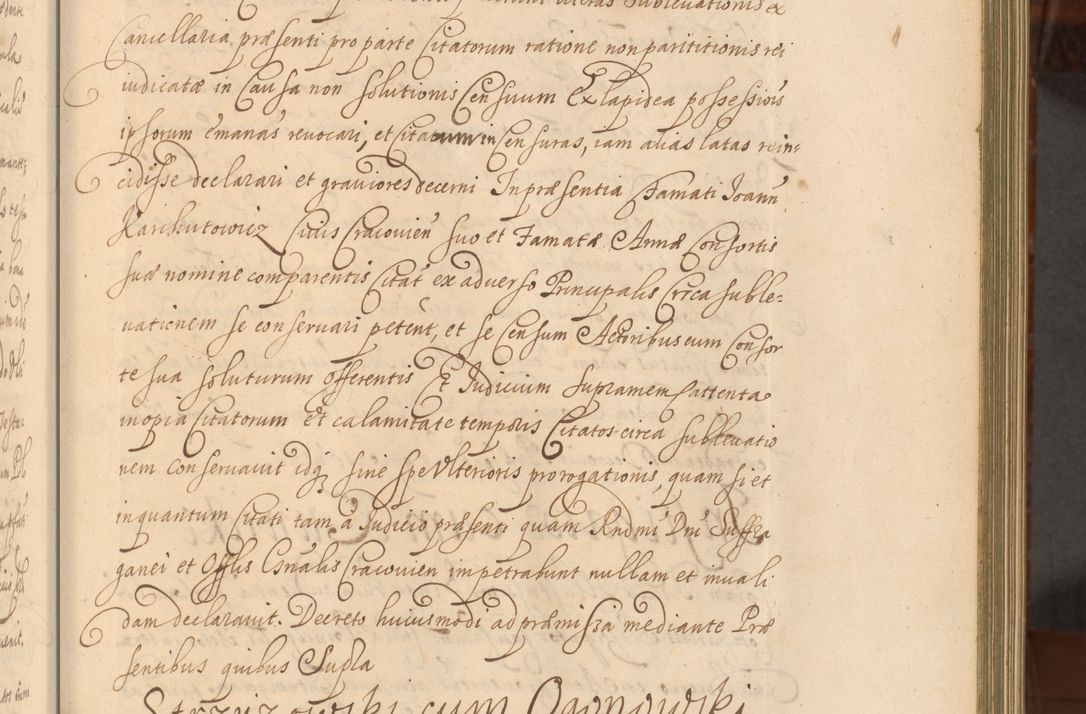 Cancellaria præsenti pro parte Citatorum ratione non parititionis rei
iudicatæ in Causa non solutionis Censuum Ex lapidea possessiois
ipsorum emanas revocari, et Citatum in Censuras, iam alias latas rein:
cidisse declarari et graviores decerni In præsentia Famati Joann
Karchutowicz Civis Cracovien suo et Famatæ Annæ Consortis
suæ nomine comparentis Citat ex adverso Principalis Circa suble:
vationem se conservari petent, et se Censum Actoribus cum Consor
te sua soluturum offerentis Et Judicium supramem sattenta
inopia Citatorum et calamitate temporis Citatos circa sublevatio
nem conservavit idq sine spe Ulterioris prorogationis, quam si et
inquantum Citati tam a Judicio præsenti quam Rndmi Dni Suffra
ganei et Offlis Gnalis Cracovien impetrabunt nullam et invali
dam declaravit. Decreto huiusmodi ad præmissa mediante Præ
sentibus quibus Supra
cum